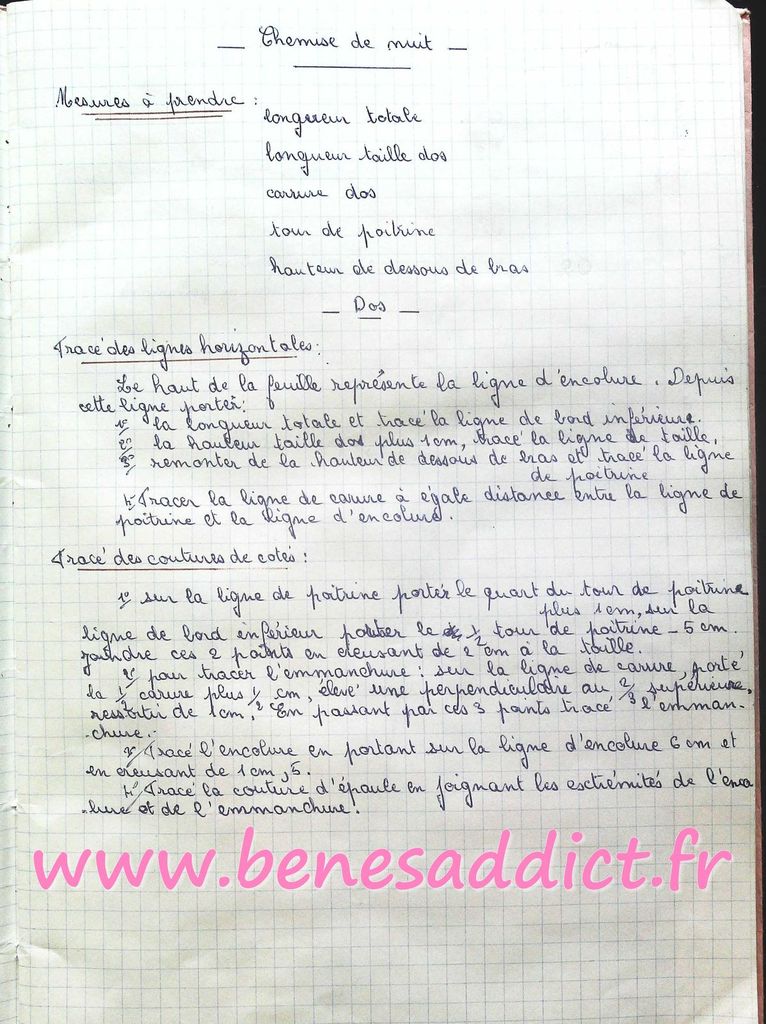 — Chemise de nuit —
Mesures à prendre :
longueur totale
longueur taille dos
carrure dos
tour de poitrine
hauteur de dessous de bras
— Dos —
Tracé des lignes horizontales :
Le haut de la feuille représente la ligne d'encolure. Depuis
cette ligne porter :
1º/ la longueur totale et tracé la ligne de bord inférieure.
2º/ la hauteur taille dos plus 1cm, tracé la ligne de taille.
3º/ remonter de la hauteur de dessous de bras et tracé la ligne
de poitrine
4º/ Tracer la ligne de carure à égale distance entre la ligne de
poitrine et la ligne d'encolure.
Tracé des coutures de cotés :
1º/ sur la ligne de poitrine porter le quart du tour de poitrine
plus 1cm, sur la
ligne de bord inférieur porter le 1/2 tour de poitrine - 5 cm.
joindre ces 2 points en creusant de 2 cm à la taille.
2º/ pour tracer l'emmanchure : sur la ligne de carure, porté
la 1/2 carure plus 1/2 cm, élevé une perpendiculaire au 2/3 supérieure,
ressortir de 1cm. En passant par ces 3 points tracé l'emman-
-chure.
3º/ Tracé l'encolure en portant sur la ligne d'encolure 6 cm et
en creusant de 1cm,5.
4º/ Tracé la couture d'épaule en joignant les esctrémités de l'enco
-lure et de l'emmanchure.
www.benesaddict.fr